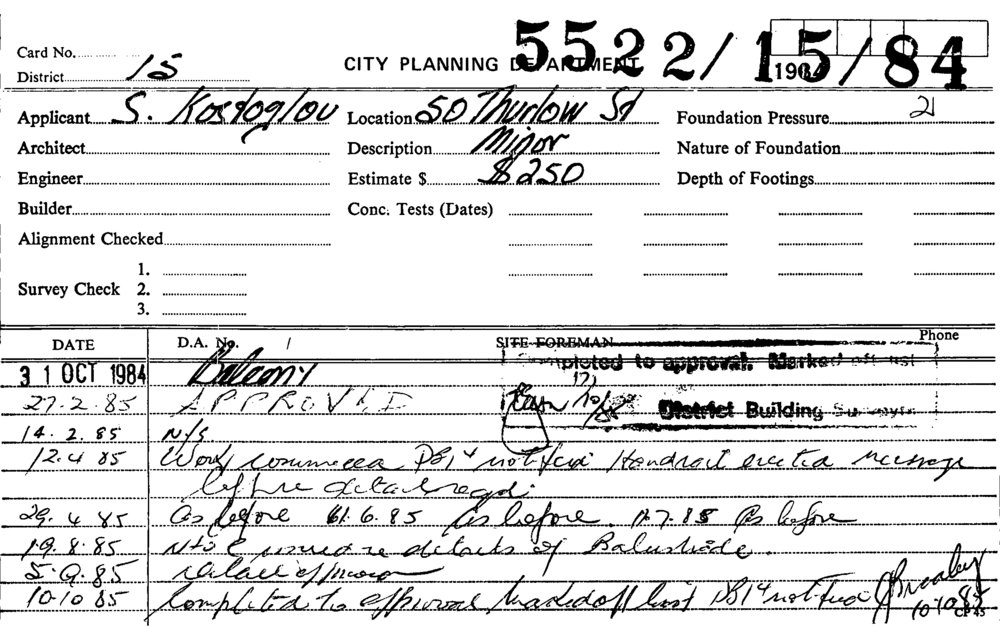 5522/15/84
Card No.
CITY PLANNING DEPARTMENT 198
District 15
Applicant S. Kostoglou Location 50 Thurlow St Foundation Pressure 21
Architect Description Minor Nature of Foundation
Engineer Estimate $ $250 Depth of Footings
Builder Conc. Tests (Dates)
Alignment Checked
1.
Survey Check 2.
3.
DATE D.A. No. SITE FOREMAN Phone
31 OCT 1984 Balcony
Completed to approval. Marked off list
27.2.85 APPROVED
District Building Surveyor
14.2.85 N/S
12.4.85 Work commenced DS14 notified Handrail erected message
before details reqd.
29.4.85 As before 6.85 As before. 11.7.85 As before
19.8.85 details of Balustrade.
5.9.85
10.10.85 Completed to approval marked off list DS14 notified
10.10.85
CP 45